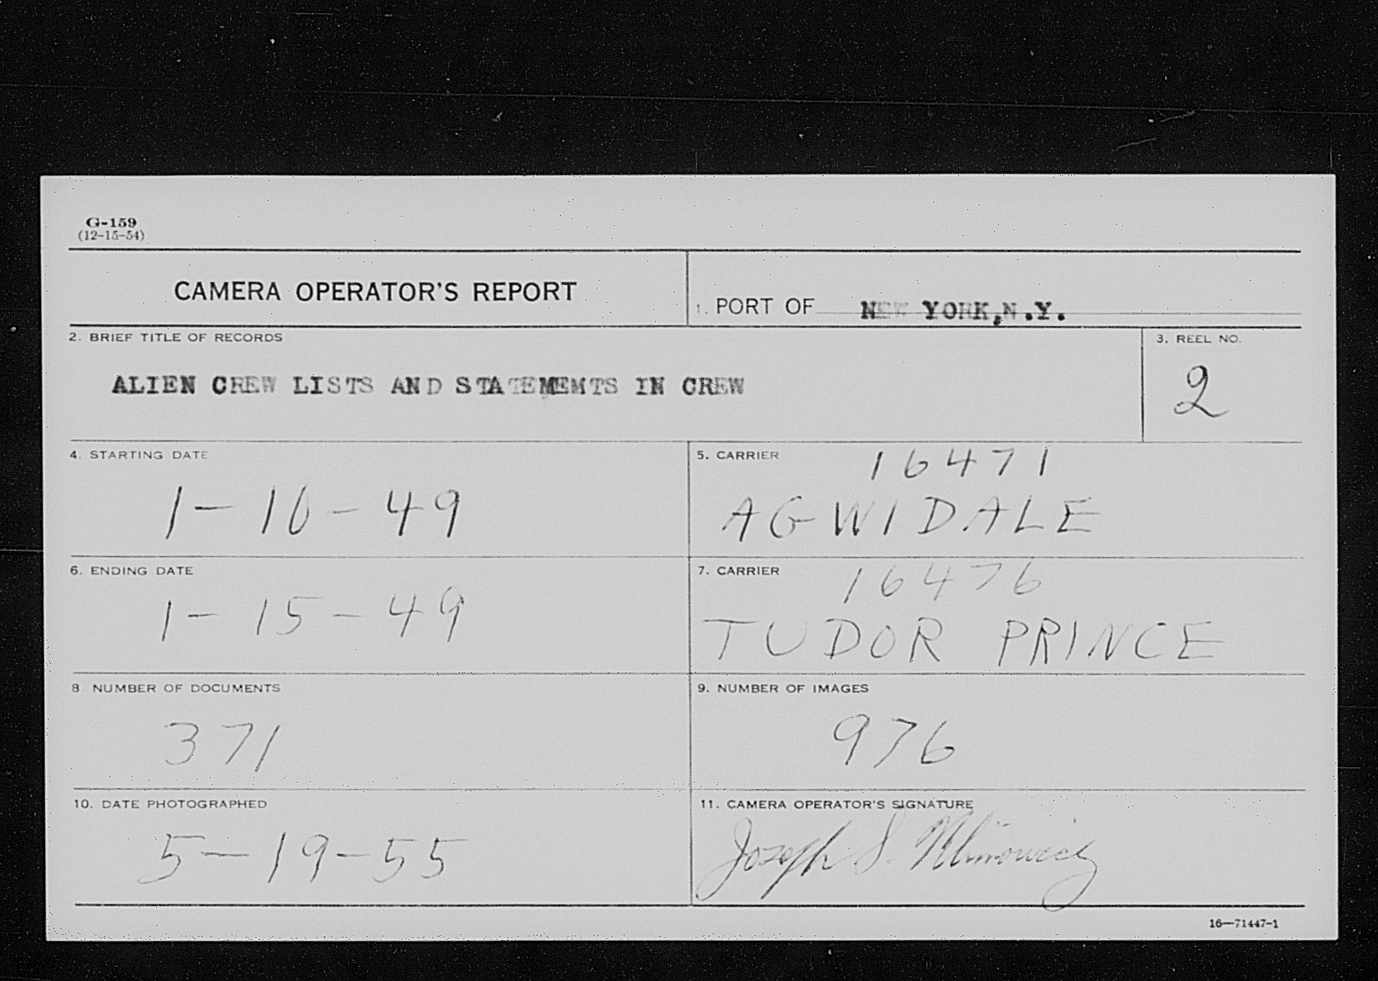 G-159
(12-15-54)
CAMERA OPERATOR'S REPORT
1. PORT OF NEW YORK,N.Y.
2. BRIEF TITLE OF RECORDS
ALIEN CREW LISTS AND STATEMEMTS IN CREW
3. REEL NO.
2
4. STARTING DATE
1-10-49
5. CARRIER 16471
AGWIDALE
6. ENDING DATE
1-15-49
7. CARRIER 16476
TUDOR PRINCE
8 NUMBER OF DOCUMENTS
371
9. NUMBER OF IMAGES
976
10. DATE PHOTOGRAPHED
5-19-55
11. CAMERA OPERATOR'S SIGNATURE
Joseph S.
16—71447-1